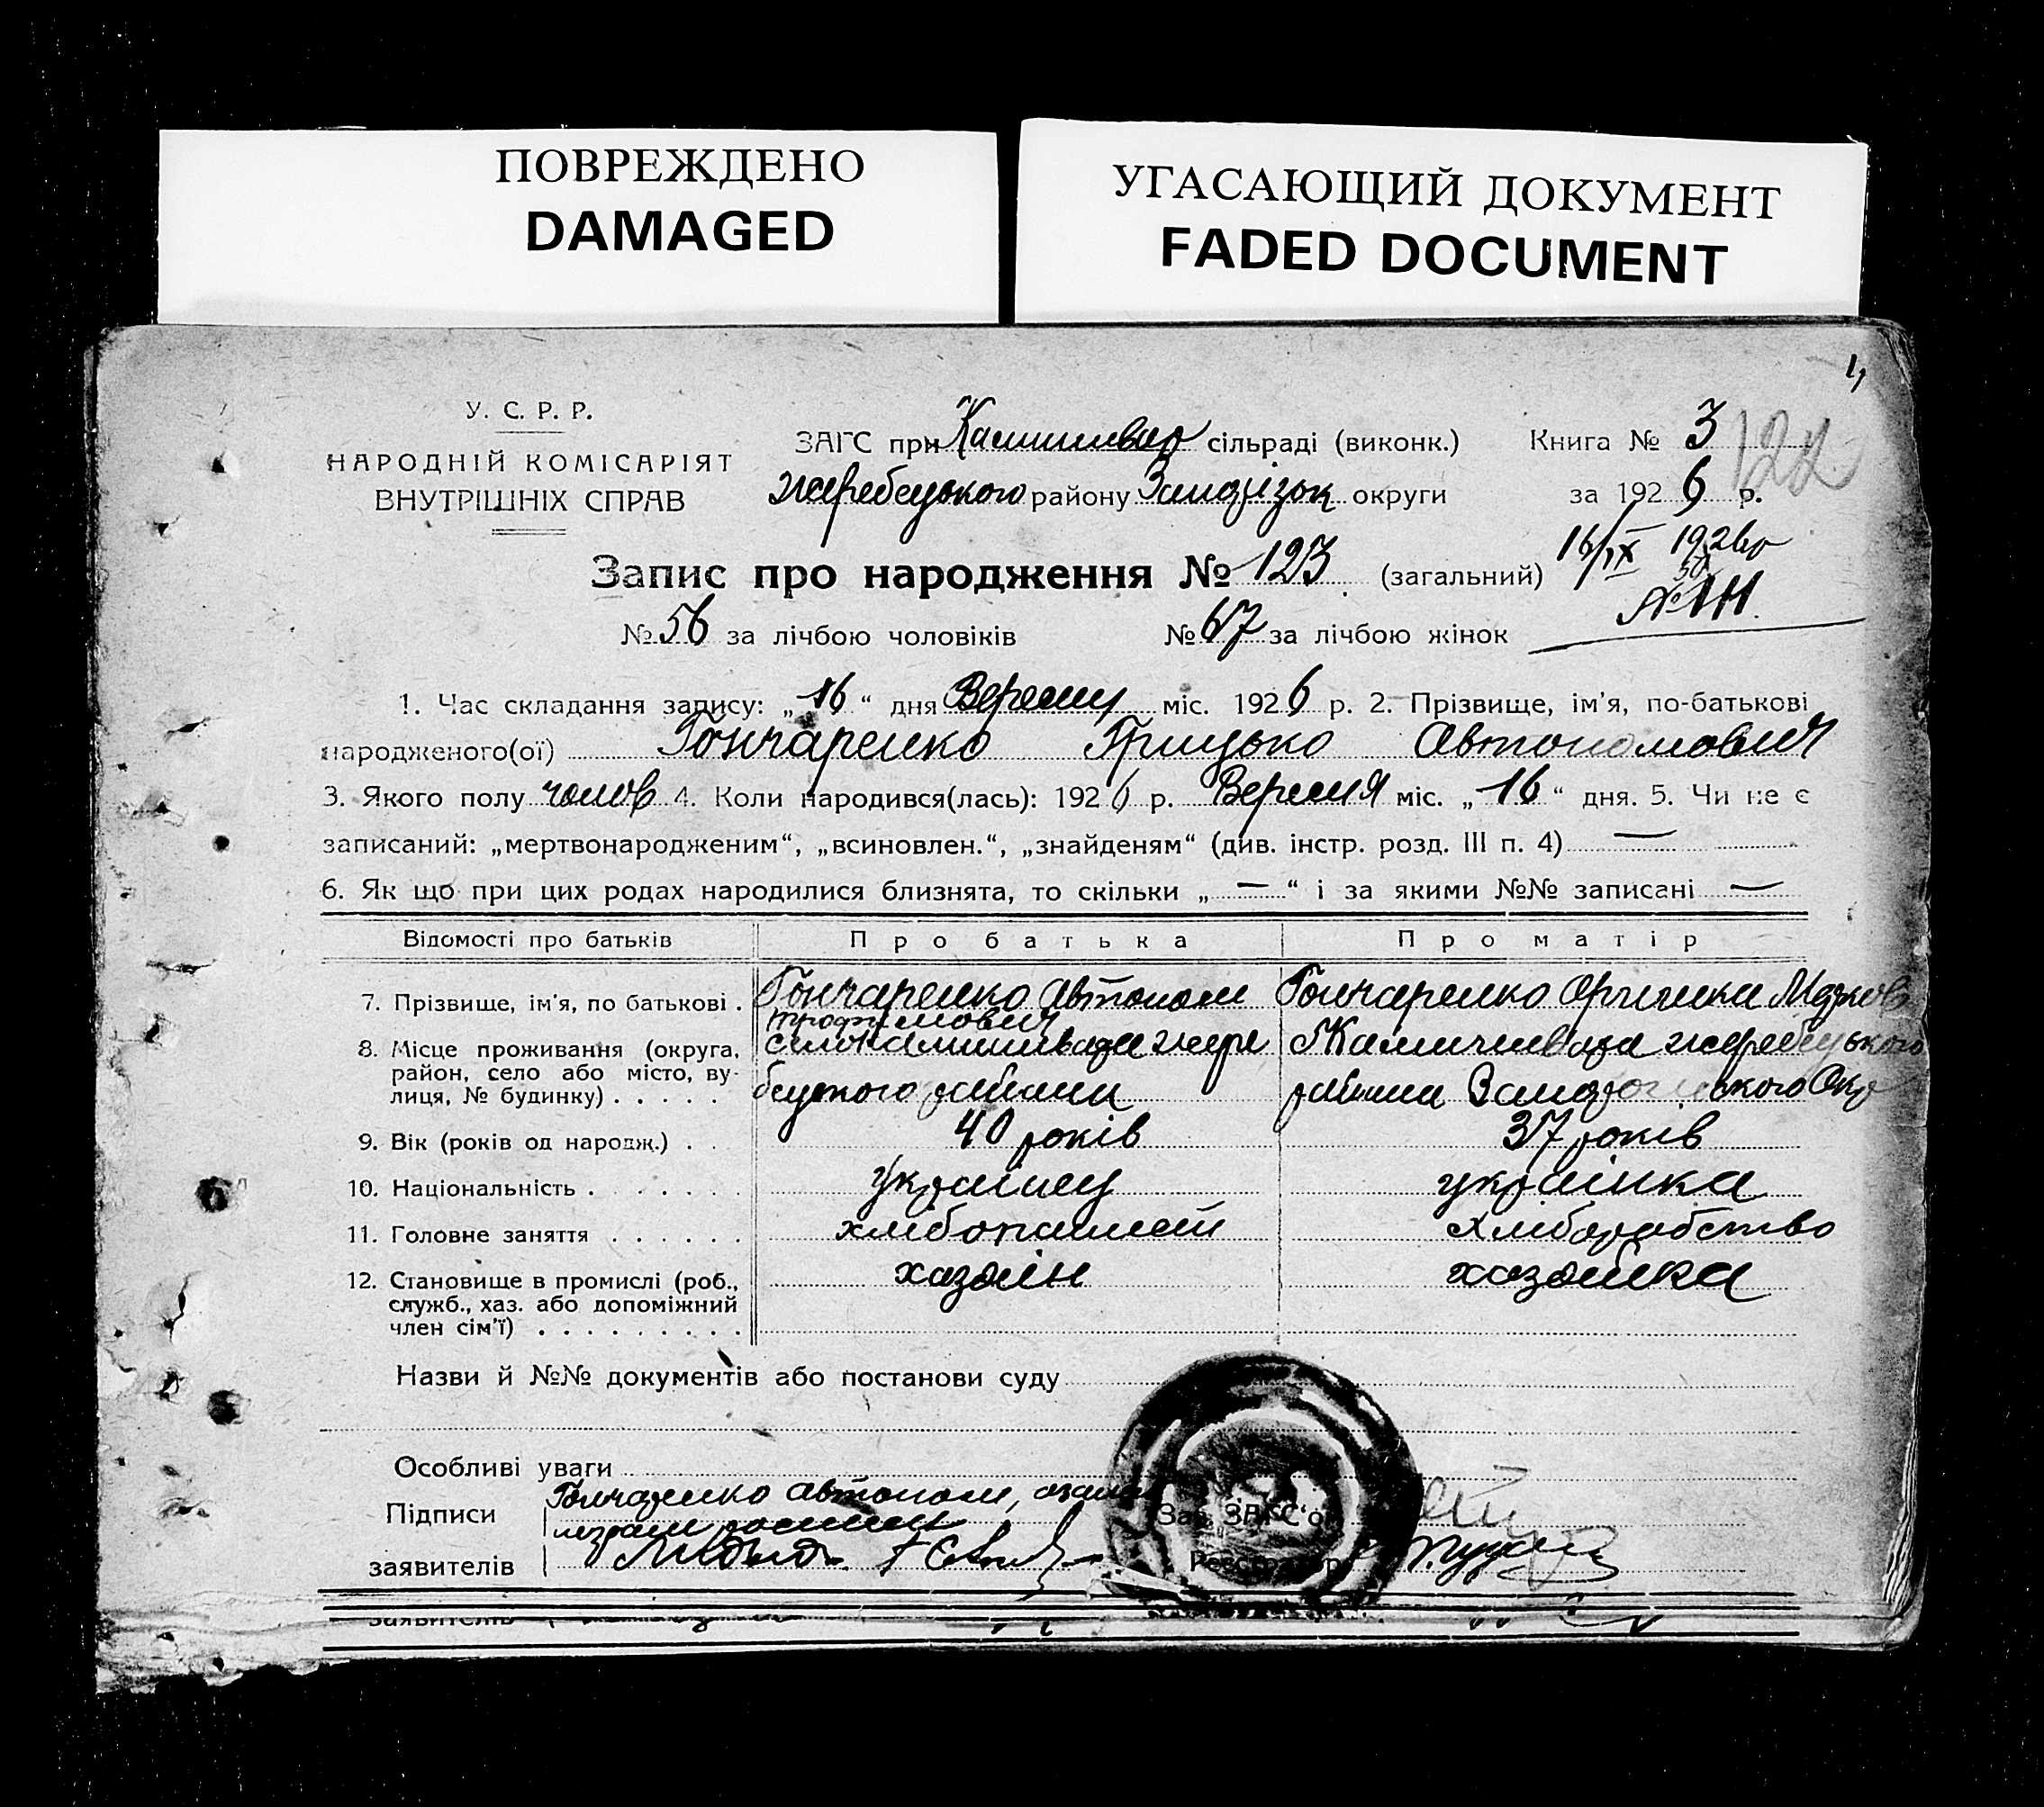 ПОВРЕЖДЕНО
DAMAGED
УГАСАЮЩИЙ ДОКУМЕНТ
FADED DOCUMENT
1,
У. С. Р. Р.
НАРОДНІЙ КОМІСАРІЯТ
ВНУТРІШНІХ СПРАВ
ЗАГС при сільраді (виконк.)
Жеребецького району округи
Книга № 3
122
за 1926 р.
16/IX 1926р
Запис про народження № 123 (загальний)
№ 56 за лічбою чоловіків № 67 за лічбою жінок
1. Час складання запису: „16“ дня Вересня міс. 1926 р. 2. Прізвище, ім'я, по-батькові
народженого(ої) Гончаренко Грицько Автономович
3. Якого полу чолов 4. Коли народився(лась): 1926 р. Вересня міс. „16“ дня. 5. Чи не є
записаний: „мертвонародженим“, „всиновлен.“, „знайденям“ (див. інстр. розд. III п. 4) —
6. Як що при цих родах народилися близнята, то скільки „—“ і за якими №№ записані —
Відомості про батьків Про батька Про матір
7. Прізвище, ім'я, по батькові . Гончаренко Автоном Трофимович Гончаренко Оришка Марков
8. Місце проживання (округа, село Камишеваха жере Камишеваха жеребецького
район, село або місто, ву-
лиця, № будинку) . . . . . бецького района района Окр
9. Вік (років од народж.) . . 40 років 37 років
10. Національність . . . . . . . українец українка
11. Головне заняття . . . . . . хліборобство
12. Становище в промислі (роб., хазяїн хазяйка
служб., хаз. або допоміжний
член сім'ї) . . . . . . . . .
Назви й №№ документів або постанови суду
Особливі уваги
Підписи Гончаренко Автоном,
заявителів
Зав. ЗАГС'ом
Реєстратор
заявителів